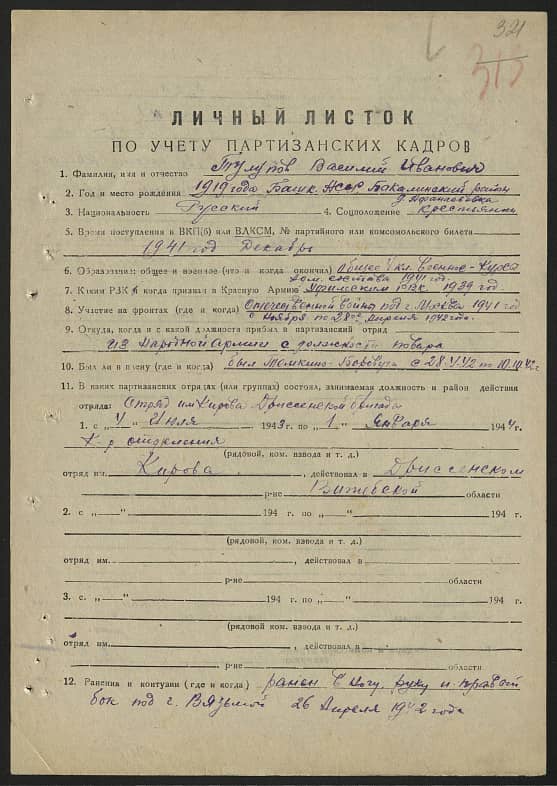 321
313
ЛИЧНЫЙ ЛИСТОК
ПО УЧЕТУ ПАРТИЗАНСКИХ КАДРОВ
1. Фамилия, имя и отчество Тулупов Василий Иванович
2. Год и место рождения 1919 года Башк. АССР Бакалинский район
3. Национальность Русский 4. Соцположение крестьянин
5. Время поступления в ВКП(б) или ВЛКСМ, № партийного или комсомольского билета
1941 год Декабрь
6. Образование: общее и военное (что и когда окончил) общее 4 кл. Военное - Курсы
ком. состава 1941 год
7. Каким РЗК и когда призван в Красную Армию Уфимским РВК. 1939 год
8. Участие на фронтах (где и когда) Отечественной войны под г. Москвой 1941 год
с Ноября по 28 Апреля 1942 го.
9. Откуда, когда и с какой должности прибыл в партизанский отряд
из Народной Армии с должности повара
10. Был ли в плену (где и когда) был с 28.4.42 по 10.10.42 г.
11. В каких партизанских отрядах (или группах) состоял, занимаемая должность и район действия
отряда: Отряд им Кирова Дриссенской бригады
1. с „4" Июля 1943 г. по „1" Января 1944 г.
К-р отделения
(рядовой, ком. взвода и т. д.)
отряд им. Кирова, действовал в Дриссенском
р-не Витебской области
2. с „ " 194 г. по „ " 194 г.
(рядовой, ком. взвода и т. д.)
отряд им. , действовал в
р-не области
3. с „ " 194 г. по „ " 194 г.
(рядовой, ком. взвода и т. д.)
отряд им. , действовал в
р-не области
12. Ранения и контузии (где и когда) ранен в ногу, руку и правый
бок под г. Вязьмой 26 Апреля 1942 года